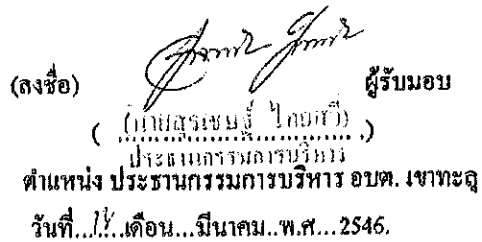 (ลงชื่อ) ผู้รับมอบ
(นายสุรเชษฐ์ ไกยสวี)
ประธานกรรมการบริหาร
ตำแหน่ง ประธานกรรมการบริหาร อบต. เขาทะลุ
วันที่...14...เดือน...มีนาคม..พ.ศ...2546.